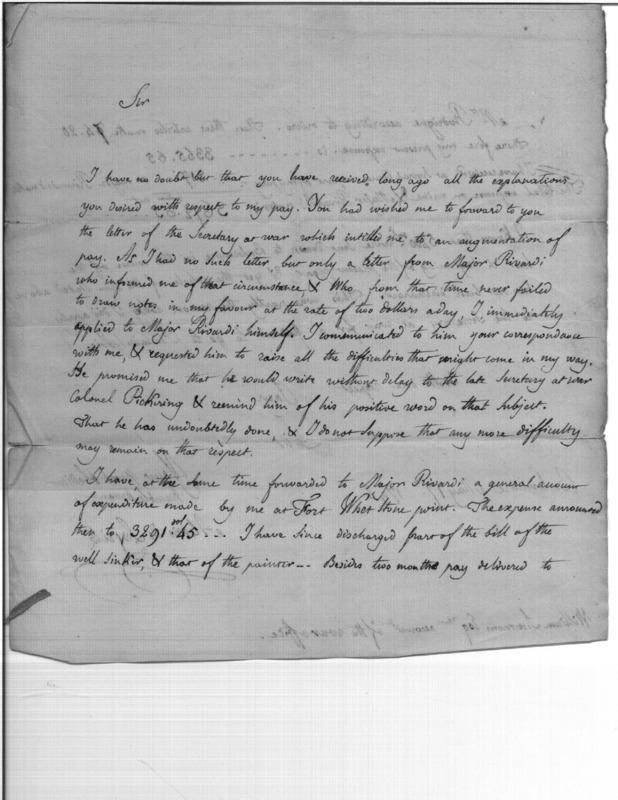 Sir
I have no doubt but that you have received long ago all the explanations
you desired with respect to my pay. You had wished me to forward to you
the letter of the Secretary at war which intitled me to an augmentation of
pay. As I had no such letter but only a letter from Major Rivardi
who informed me of that circumstance & Who from that time never failed
to draw notes in my favour at the rate of two dollars a day, I immediately
applied to Major Rivardi himself. I communicated to him your correspondance
with me, & requested him to raise all the difficulties that might come in my way.
He promised me that he would write without delay to the late Secretary at war
Colonel Pickiring & remind him of his positive word on that subject.
That he has undoubtedly done, & I do not suppose that any more difficulty
may remain on that respect.
I have, at the same time forwarded to Major Rivardi a general account
of expenditure made by me at Fort Whetstone point. The expense amounted
then to 3291 dol 45 --- I have since discharged part of the bill of the
well sinker, & that of the painter -- Besides two months pay delivered to